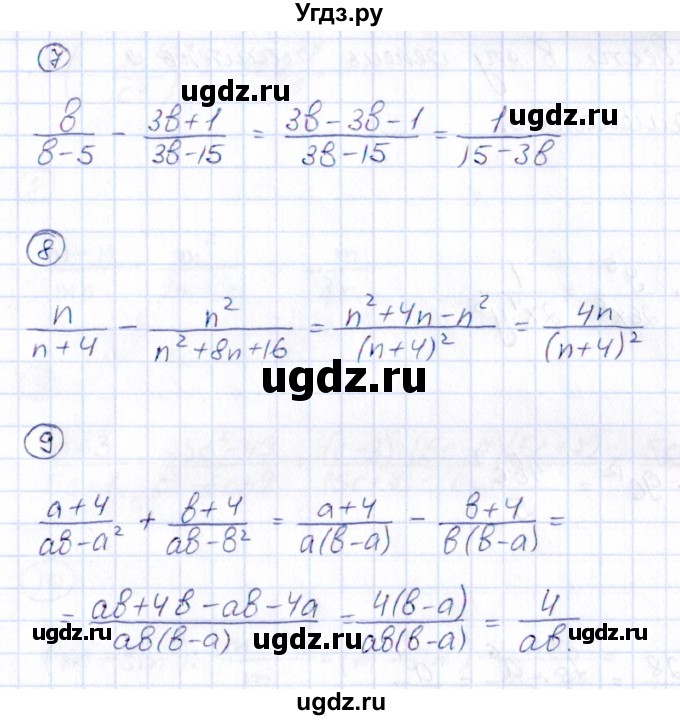 Угдз.ру
7
b/(b-5) - (3b+1)/(3b-15) = (3b-3b-1)/(3b-15) = 1/(15-3b)
ugdz.ru
ugdz.ru
8
n/(n+4) - n²/(n²+8n+16) = (n²+4n-n²)/(n+4)² = 4n/(n+4)²
ugdz.ru
9
(a+4)/(ab-a²) + (b+4)/(ab-b²) = (a+4)/(a(b-a)) - (b+4)/(b(b-a)) =
= (ab+4b-ab-4a)/(ab(b-a)) = 4(b-a)/(ab(b-a)) = 4/(ab).
ugdz.ru
ugdz.ru
ugdz.ru
ugdz.ru